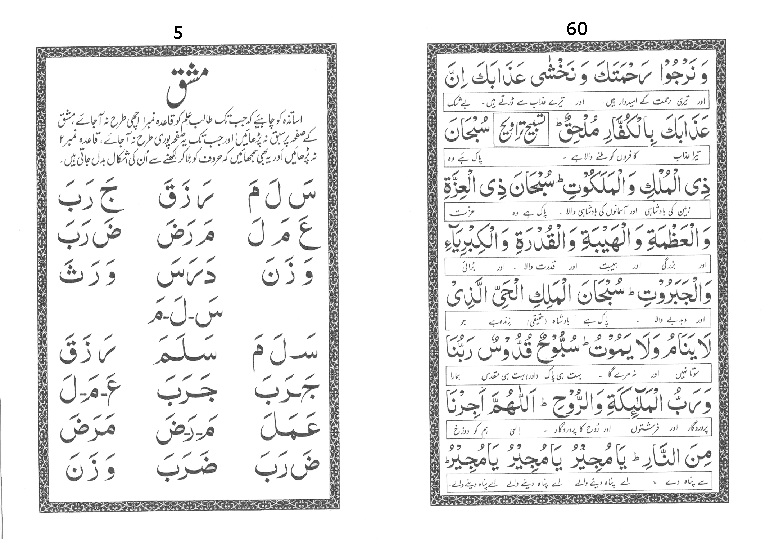 5
مشق
اساتذہ کو چاہیئے کہ جب تک طالب علم کو قاعدہ نمبر۱ اچھی طرح نہ آ جائے مشق
کے صفحہ پر سبق نہ پڑھائیں اور جب تک یہ صفحہ پوری طرح نہ آ جائے، قاعدہ نمبر۲
نہ پڑھائیں اور یہ بھی سمجھائیں کہ حروف کو ملا کر لکھنے سے اُن کی اشکال بدل جاتی ہیں۔
سَ لَ مَ رَ زَ قَ جَ رَ بَ
عَ مَ لَ مَ رَ ضَ ضَ رَ بَ
وَ زَ نَ دَ رَ سَ وَ رَ ثَ
سَ-لَ-مَ
سَـ لَ مَ سَـلَـمَ رَ زَ قَ
جَـرَ بَ جَـرَبَ عَـمَـلَ
عَمَلَ مَـرَضَ مَرَضَ
ضَ رَ بَ ضَرَبَ وَ زَ نَ
60
وَ نَرْجُوْا رَحْمَتَكَ وَ نَخْشٰى عَذَابَكَ اِنَّ
اور تیری رحمت کے امیدوار ہیں اور تیرے عذاب سے ڈرتے ہیں۔ بے شک
عَذَابَكَ بِالْكُفَّارِ مُلْحِقٌ تسبیح تراویح سُبْحَانَ
تیرا عذاب کافروں کو ملنے والا ہے۔ پاک ہے وہ
ذِى الْمُلْكِ وَالْمَلَكُوْتِ سُبْحَانَ ذِى الْعِزَّةِ
زمین کی بادشاہی اور آسمانوں کی بادشاہی والا۔ پاک ہے وہ عزت
وَالْعَظَمَةِ وَالْهَيْبَةِ وَالْقُدْرَةِ وَالْكِبْرِيَآءِ
اور بزرگی اور ہیبت اور قدرت والا۔ اور بڑائی
وَالْجَبَرُوْتِ سُبْحَانَ الْمَلِكِ الْحَيِّ الَّذِىْ
اور دبدبے والا۔ پاک ہے بادشاہ حقیقی زندہ ہے جو
لَا يَنَامُ وَلَا يَمُوْتُ سُبُّوْحٌ قُدُّوْسٌ رَبُّنَا
سوتا نہیں اور نہ مرے گا۔ بہت ہی پاک بہت ہی مقدس ہمارا
وَرَبُّ الْمَلٰٓئِكَةِ وَالرُّوْحِ اَللّٰهُمَّ اَجِرْنَا
پروردگار اور فرشتوں اور روح کا پروردگار۔ الٰہی ہم کو دوزخ
مِنَ النَّارِ يَا مُجِيْرُ يَا مُجِيْرُ يَا مُجِيْرُ
سے پناہ دے۔ اے پناہ دینے والے اے پناہ دینے والے اے پناہ دینے والے۔